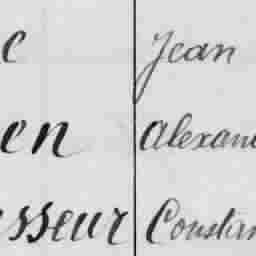 c Jean
en Alexan
sseur Constan